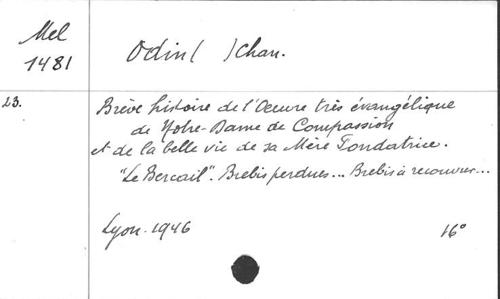 Mel
1481
Odin ( ) chan.
23.
Brève histoire de l'Oeuvre très évangélique
de Notre-Dame de Compassion
et de la belle vie de sa Mère Fondatrice.
"Le Bercail". Brebis perdues... Brebis à recouvrer...
Lyon. 1946
16°